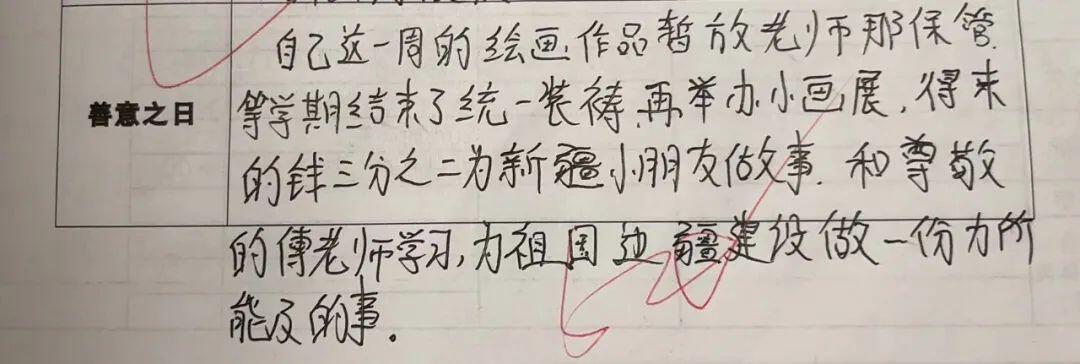 自己这一周的绘画作品暂放老师那保管.
善意之日
等学期结束了统一装裱,再举办小画展,得来
的钱三分之二为新疆小朋友做事.和尊敬
的傅老师学习,为祖国边疆建设做一份力所
能及的事.